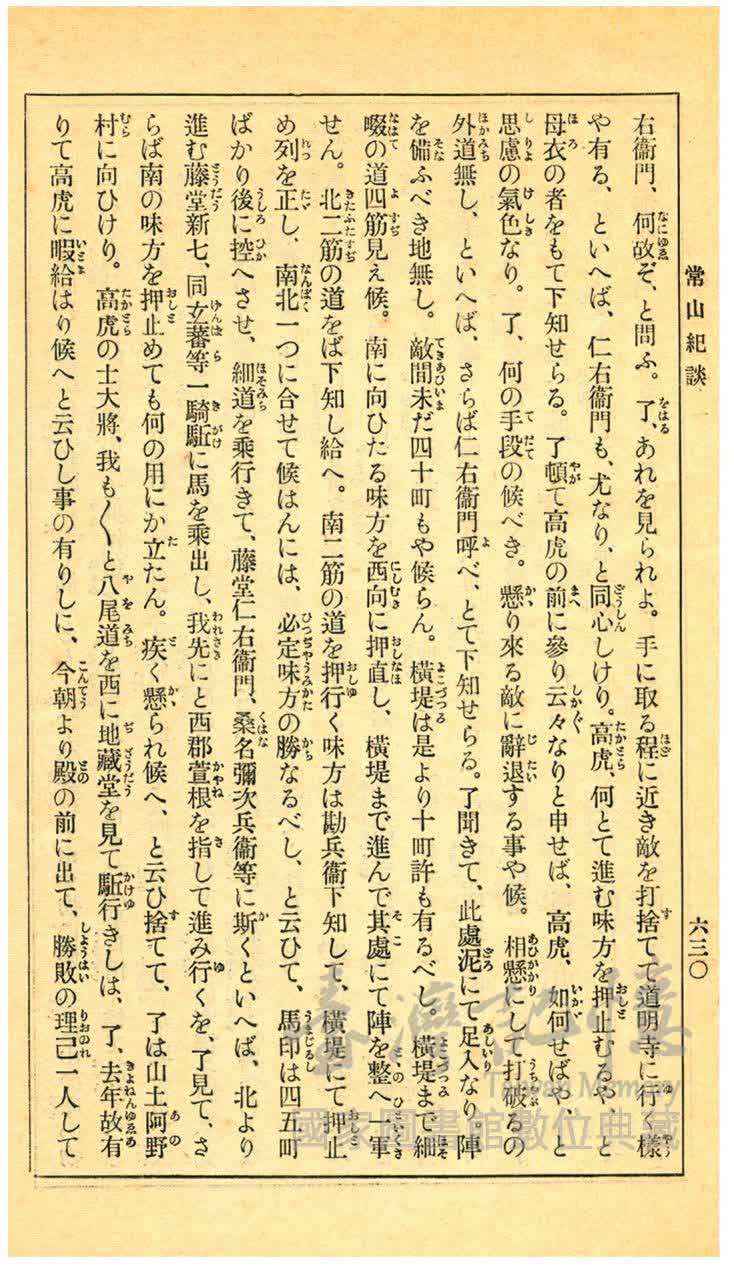 常山紀談
六三〇
右衞門、何故ぞ、と問ふ。了、あれを見られよ。手に取る程に近き敵を打捨てて道明寺に行く樣
や有る、といへば、仁右衞門も、尤なり、と同心しけり。高虎、何とて進む味方を押止むるや、と
母衣の者をもて下知せらる。了頓て高虎の前に參り云々なりと申せば、高虎、如何せばや、と
思慮の氣色なり。了、何の手段の候べき。懸り來る敵に辭退する事や候。相懸にして打破るの
外道無し、といへば、さらば仁右衞門呼べ、とて下知せらる。了聞きて、此處泥にて足入なり。陣
を備ふべき地無し。敵間未だ四十町もや候らん。橫堤は是より十町許も有るべし。橫堤まで細
畷の道四筋見え候。南に向ひたる味方を西向に押直し、橫堤まで進んで其處にて陣を整へ一軍
せん。北二筋の道をば下知し給へ。南二筋の道を押行く味方は勘兵衞下知して、橫堤にて押止
め列を正し、南北一つに合せて候はんには、必定味方の勝なるべし、と云ひて、馬印は四五町
ばかり後に控へさせ、細道を乘行きて、藤堂仁右衞門、桑名彌次兵衞等に斯くといへば、北より
進む藤堂新七、同玄蕃等一騎駈に馬を乘出し、我先にと西郡萱根を指して進み行くを、了見て、さ
らば南の味方を押止めても何の用にか立たん。疾く懸られ候へ、と云ひ捨てて、了は山土阿野
村に向ひけり。高虎の士大將、我も〱と八尾道を西に地藏堂を見て駈行きしは、了、去年故有
りて高虎に暇給はり候へと云ひし事の有りしに、今朝より殿の前に出て、勝敗の理己一人して
臺灣記憶
Taiwan Memory
國家圖書館數位典藏